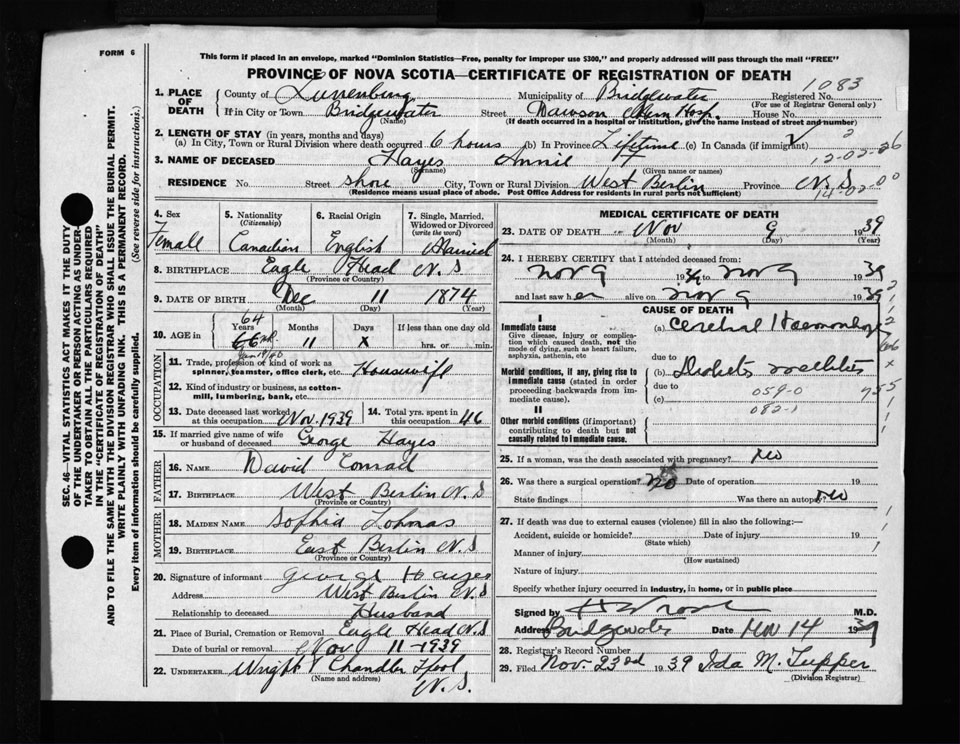 FORM 6
This form if placed in an envelope, marked "Dominion Statistics—Free, penalty for improper use $300," and properly addressed will pass through the mail "FREE"
PROVINCE OF NOVA SCOTIA—CERTIFICATE OF REGISTRATION OF DEATH
1083
1. PLACE OF DEATH County of Lunenburg Municipality of Bridgewater Registered No. (For use of Registrar General only)
If in City or Town Bridgewater (Name) Street Dawson Mem Hosp. House No.
(If death occurred in a hospital or institution, give the name instead of street and number)
2. LENGTH OF STAY (in years, months and days)
(a) In City, Town or Rural Division where death occurred 6 hours (b) In Province Lifetime (c) In Canada (if immigrant)
12-02-26
3. NAME OF DECEASED Hayes Annie
(Surname) (Given name or names)
RESIDENCE No. Street Shore City, Town or Rural Division West Berlin Province N.S
(Residence means usual place of abode. Post Office Address for residents in rural parts not sufficient)
14-02-00
4. Sex Female
5. Nationality (Citizenship) Canadian
6. Racial Origin English
7. Single, Married, Widowed or Divorced (write the word) Married
8. BIRTHPLACE Eagle Head N.S
(Province or Country)
9. DATE OF BIRTH Dec 11 1874
(Month) (Day) (Year)
10. AGE in Years 64 Months 11 Days x If less than one day old hrs. or min.
OCCUPATION
11. Trade, profession or kind of work as spinner, teamster, office clerk, etc. Housewife
12. Kind of industry or business, as cotton-mill, lumbering, bank, etc.
13. Date deceased last worked at this occupation Nov. 1939
14. Total yrs. spent in this occupation 46
15. If married give name of wife or husband of deceased George Hayes
FATHER
16. NAME David Conrad
17. BIRTHPLACE West Berlin N.S
(Province or Country)
MOTHER
18. MAIDEN NAME Sophia
19. BIRTHPLACE East Berlin N.S
(Province or Country)
20. Signature of informant George Hayes
Address West Berlin N.S
Relationship to deceased Husband
21. Place of Burial, Cremation or Removal Eagle Head N.S
Date of burial or removal Nov 11-1939
22. UNDERTAKER Wright & Chandler Lpool
(Name and address) N.S.
MEDICAL CERTIFICATE OF DEATH
23. DATE OF DEATH Nov 9 1939
(Month) (Day) (Year)
24. I HEREBY CERTIFY that I attended deceased from:
Nov 9 1939 to Nov 9 1939
and last saw her alive on Nov 9 1939
CAUSE OF DEATH
I
Immediate cause
Give disease, injury or complication which caused death, not the mode of dying, such as heart failure, asphyxia, asthenia, etc
(a) Cerebral Haemorrhage
due to
Morbid conditions, if any, giving rise to immediate cause (stated in order proceeding backwards from immediate cause).
(b) Diabetes mellitus
due to
059-0
(c)
082-1
II
Other morbid conditions (if important) contributing to death but not causally related to immediate cause.
25. If a woman, was the death associated with pregnancy? No
26. Was there a surgical operation? No Date of operation 19
State findings Was there an autopsy? No
27. If death was due to external causes (violence) fill in also the following:—
Accident, suicide or homicide? Date of injury 19
(State which)
Manner of injury
(How sustained)
Nature of injury
Specify whether injury occurred in industry, in home, or in public place
Signed by M.D.
Address Bridgewater Date Nov 14 1939
28. Registrar's Record Number
29. Filed Nov. 23rd 1939 Ida M. Tupper
(Division Registrar)
SEC. 46—VITAL STATISTICS ACT MAKES IT THE DUTY
OF THE UNDERTAKER OR PERSON ACTING AS UNDER-
TAKER TO OBTAIN ALL THE PARTICULARS REQUIRED
IN THE "CERTIFICATE OF REGISTRATION OF DEATH"
AND TO FILE THE SAME WITH THE DIVISION REGISTRAR WHO SHALL ISSUE THE BURIAL PERMIT.
WRITE PLAINLY WITH UNFADING INK. THIS IS A PERMANENT RECORD.
Every item of information should be carefully supplied. (See reverse side for instructions.)